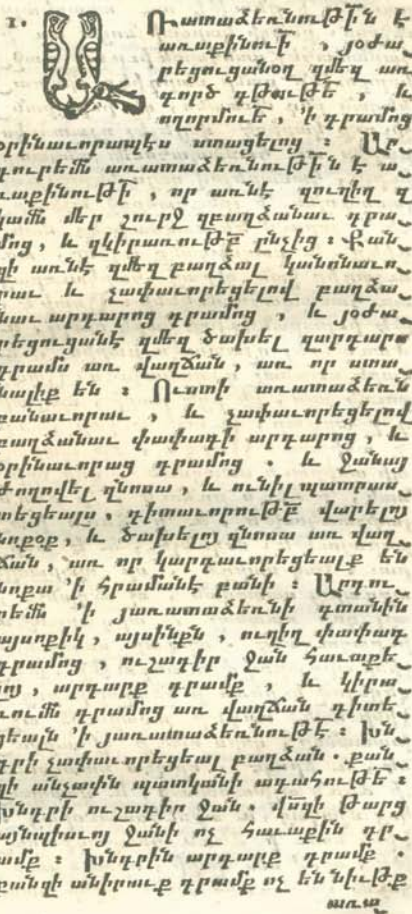 1. Առատաձեռնութի՛ն է
առաքինուի , յօժա֊
րեցուցանօղ զմեզ առ
գործ գթութե , և
ողորմուե , ՚ի դրամոց
օրինաւորապէս ստացելոց : Ար֊
դուրեմն առատաձեռնութի՛ն է ա
ռաքինութի , որ առնէ զուղիղ զ
կամն մեր շուրջ զբաղձանաւ դրա
մոց , և զկիրառութբ ընչից : Քան֊
զի առնէ զմեզ բաղձալ կանոնաւո֊
րաւ և չափաւորեցելով բաղձա֊
նաւ արդարոց դրամոց , և յօժա֊
րեցուցանէ զմեզ ծախել զարդարս
դրամս առ վաղճան , առ որ ստա
նալիք են : Ուստի առատաձեռն
բանաւորաւ , և չափաւորեցելով
բաղձանաւ փափագի արդարոց , և
օրինաւորաց դրամոց . և ջանայ
ժողովել զնոսա , և ունիլ պատրաս
տեցեալս , դիտաւորութբ վարելոյ
նոքօք , և ծախելոյ զնոսա առ վաղ
ճան , առ որ կարգաւորեցեալք են
նոքա ՚ի հրամանէ բանի : Արդու֊
րեմն ՚ի յառատաձեռնի գտանին
այսոքիկ , այսինքն , ուղիղ փափագ
դրամոց , ուշադիր ջան հաւաքե֊
լոյ , արդարք դրամք , և կիրա֊
ւումն դրամոց առ վաղճան դիտե֊
ցեալն ՚ի յառատաձեռնութէ : խն֊
դրի չափաւորեցեալ բաղձան . քան֊
զի անչափն պատկանի ագահութե :
խնդրի ուշադիր ջան . վնզի թարց
այնպիսւոյ ջանի ոչ հաւաքին դր֊
ամք : խնդրին արդարք դրամք .
քանզի անիրաւք դրամք ոչ են նիւթք
առա